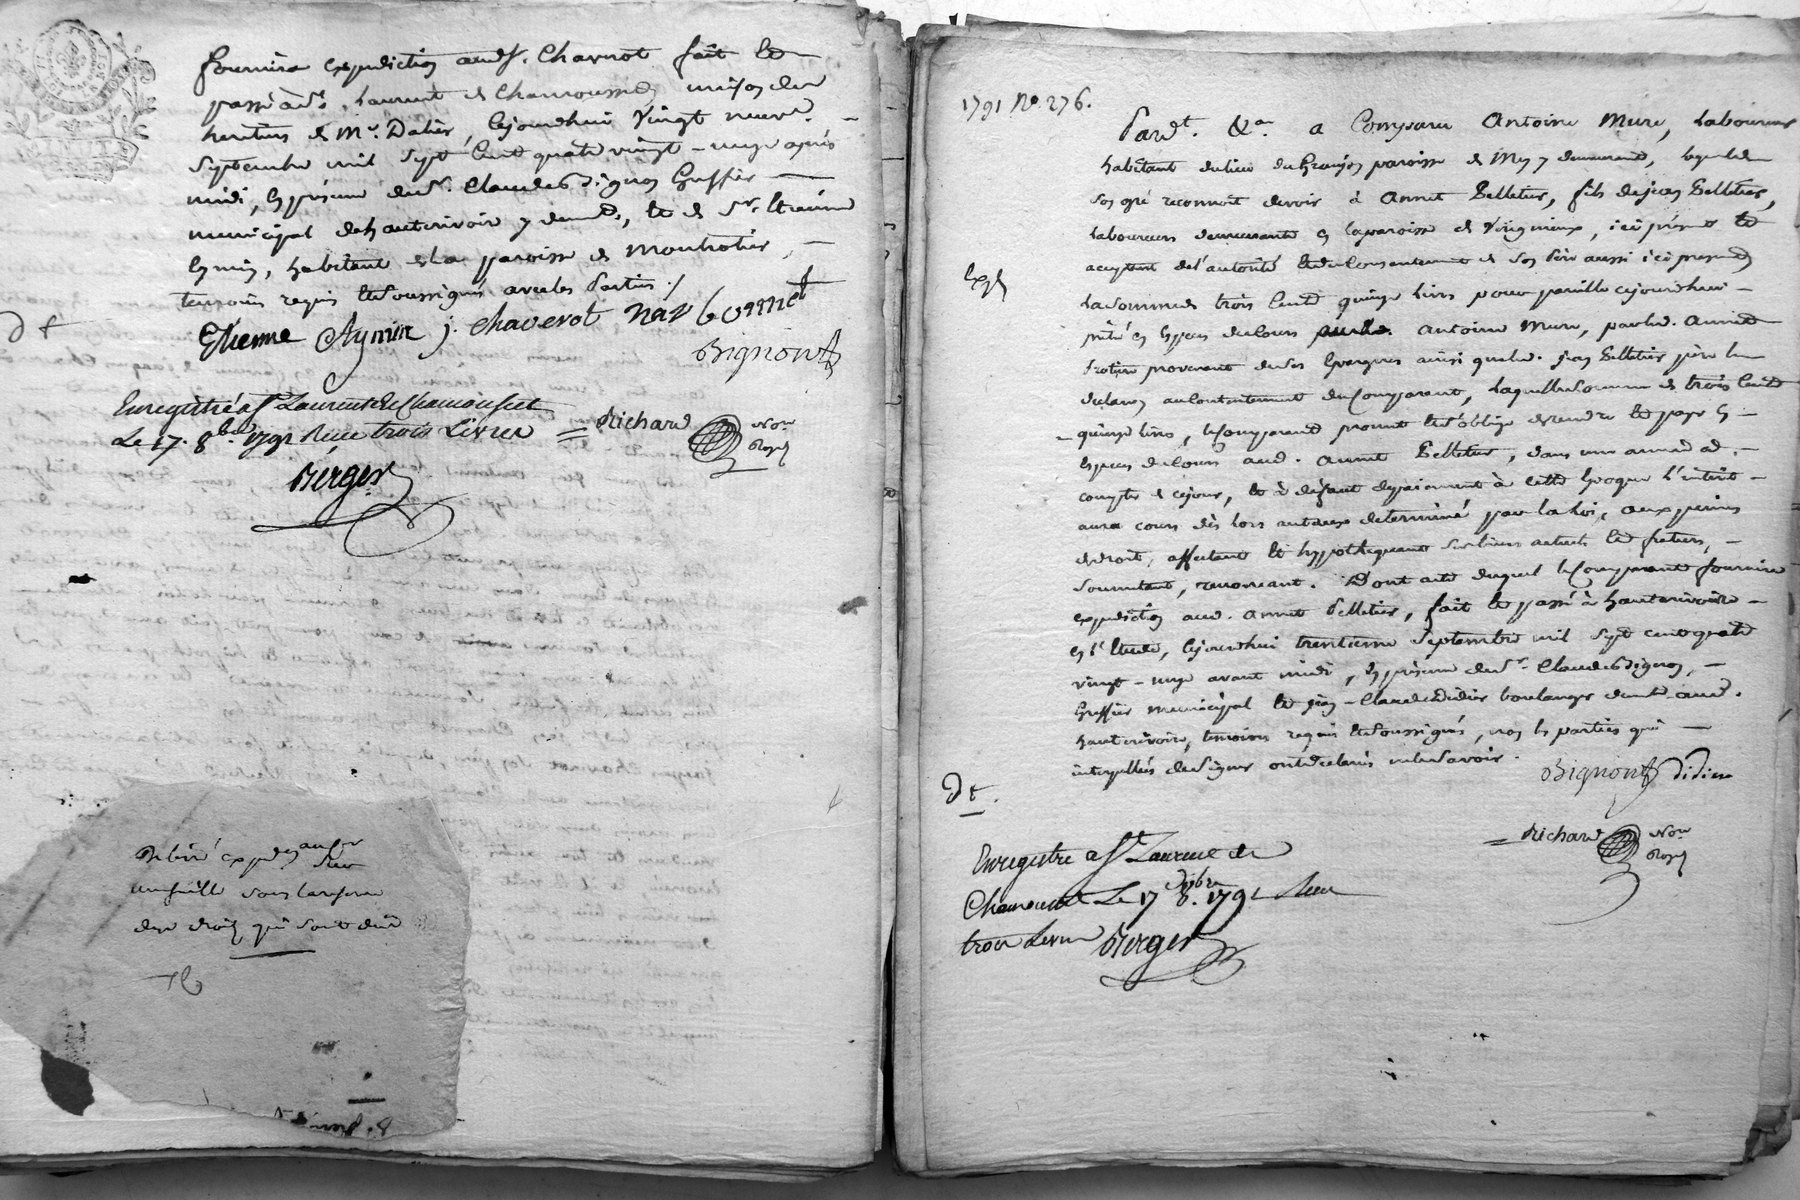 fournira expedition aud. sr. Chavrot fait et
passé à St. Laurent de Chamousset, maison des
heritiers de Mr. Dalier, cejourdhui vingt neuf
septembre mil sept cent quatre vingt-onze après
midi, en présence de sr. Claude Bignon Greffier
municipal de hauterivoir y demt., et de sr. Etienne
Eymin, habitant de la paroisse de Montrotier,
temoins requis et soussignés avec les parties./
Etienne Aymin j. chaverot naz bornet
Bignon
Dt
Enregistré a St Laurent de Chamousset
Le 17. 8bre 1791 Recu trois Livres
= Richard
Nore
Royal
Berger
délivré expedition
une feuille sous la reserve
des droits qui sont dus
1791 No. 276.
Pardt. &a. a Comparu Antoine Mure, Laboureur
habitant du lieu du Granjon paroisse de Mys y demeurant, lequel de
son gré reconnoit devoir à Annet Pelletier, fils de jean Pelletier,
Laboureurs demeurants en la paroisse de Virigneux, ici présent et
acceptant de l'autorité et du consentement de son père aussi ici présent
Exp
La somme de trois cent quinze livres pour pareille cejourdhui
prêté en especes de cours audit Antoine Mure, par led. Annet
provenant de ses Epargnes ainsi que led. jean Pelletier père l'a
déclaré au contentement du comparant, laquelle somme de trois cent
quinze livres, le comparant promet et s'oblige de rendre et payer en
especes de cours aud. Annet Pelletier, dans une année à
compter de cejour, et à défaut de paiement à cette époque l'interêt
aura cours dès lors au taux determiné par la loi, aux peines
de droit, affectant et hyppothequant ses biens actuels et futurs,
soumettant, renonceant. Dont acte duquel le Comparant fournira
expedition aud. Annet Pelletier, fait et passé à hauterivoire
en l'Etude, cejourdhui trentieme septembre mil sept cent quatre
vingt-onze avant midi, en présence de sr. Claude Bignon,
Greffier municipal et jean-Claude Didier boulanger demt. aud.
hauterivoire, temoins requis et soussignés, non les parties qui
interpellées de signer ont déclaré ne le savoir.
Bignon Didier
Dt.
= Richard
Nore
Royal
Enregistré a St Laurent de
Chamousset Le 17 8bre. 1791 Recu
trois Livres Berger